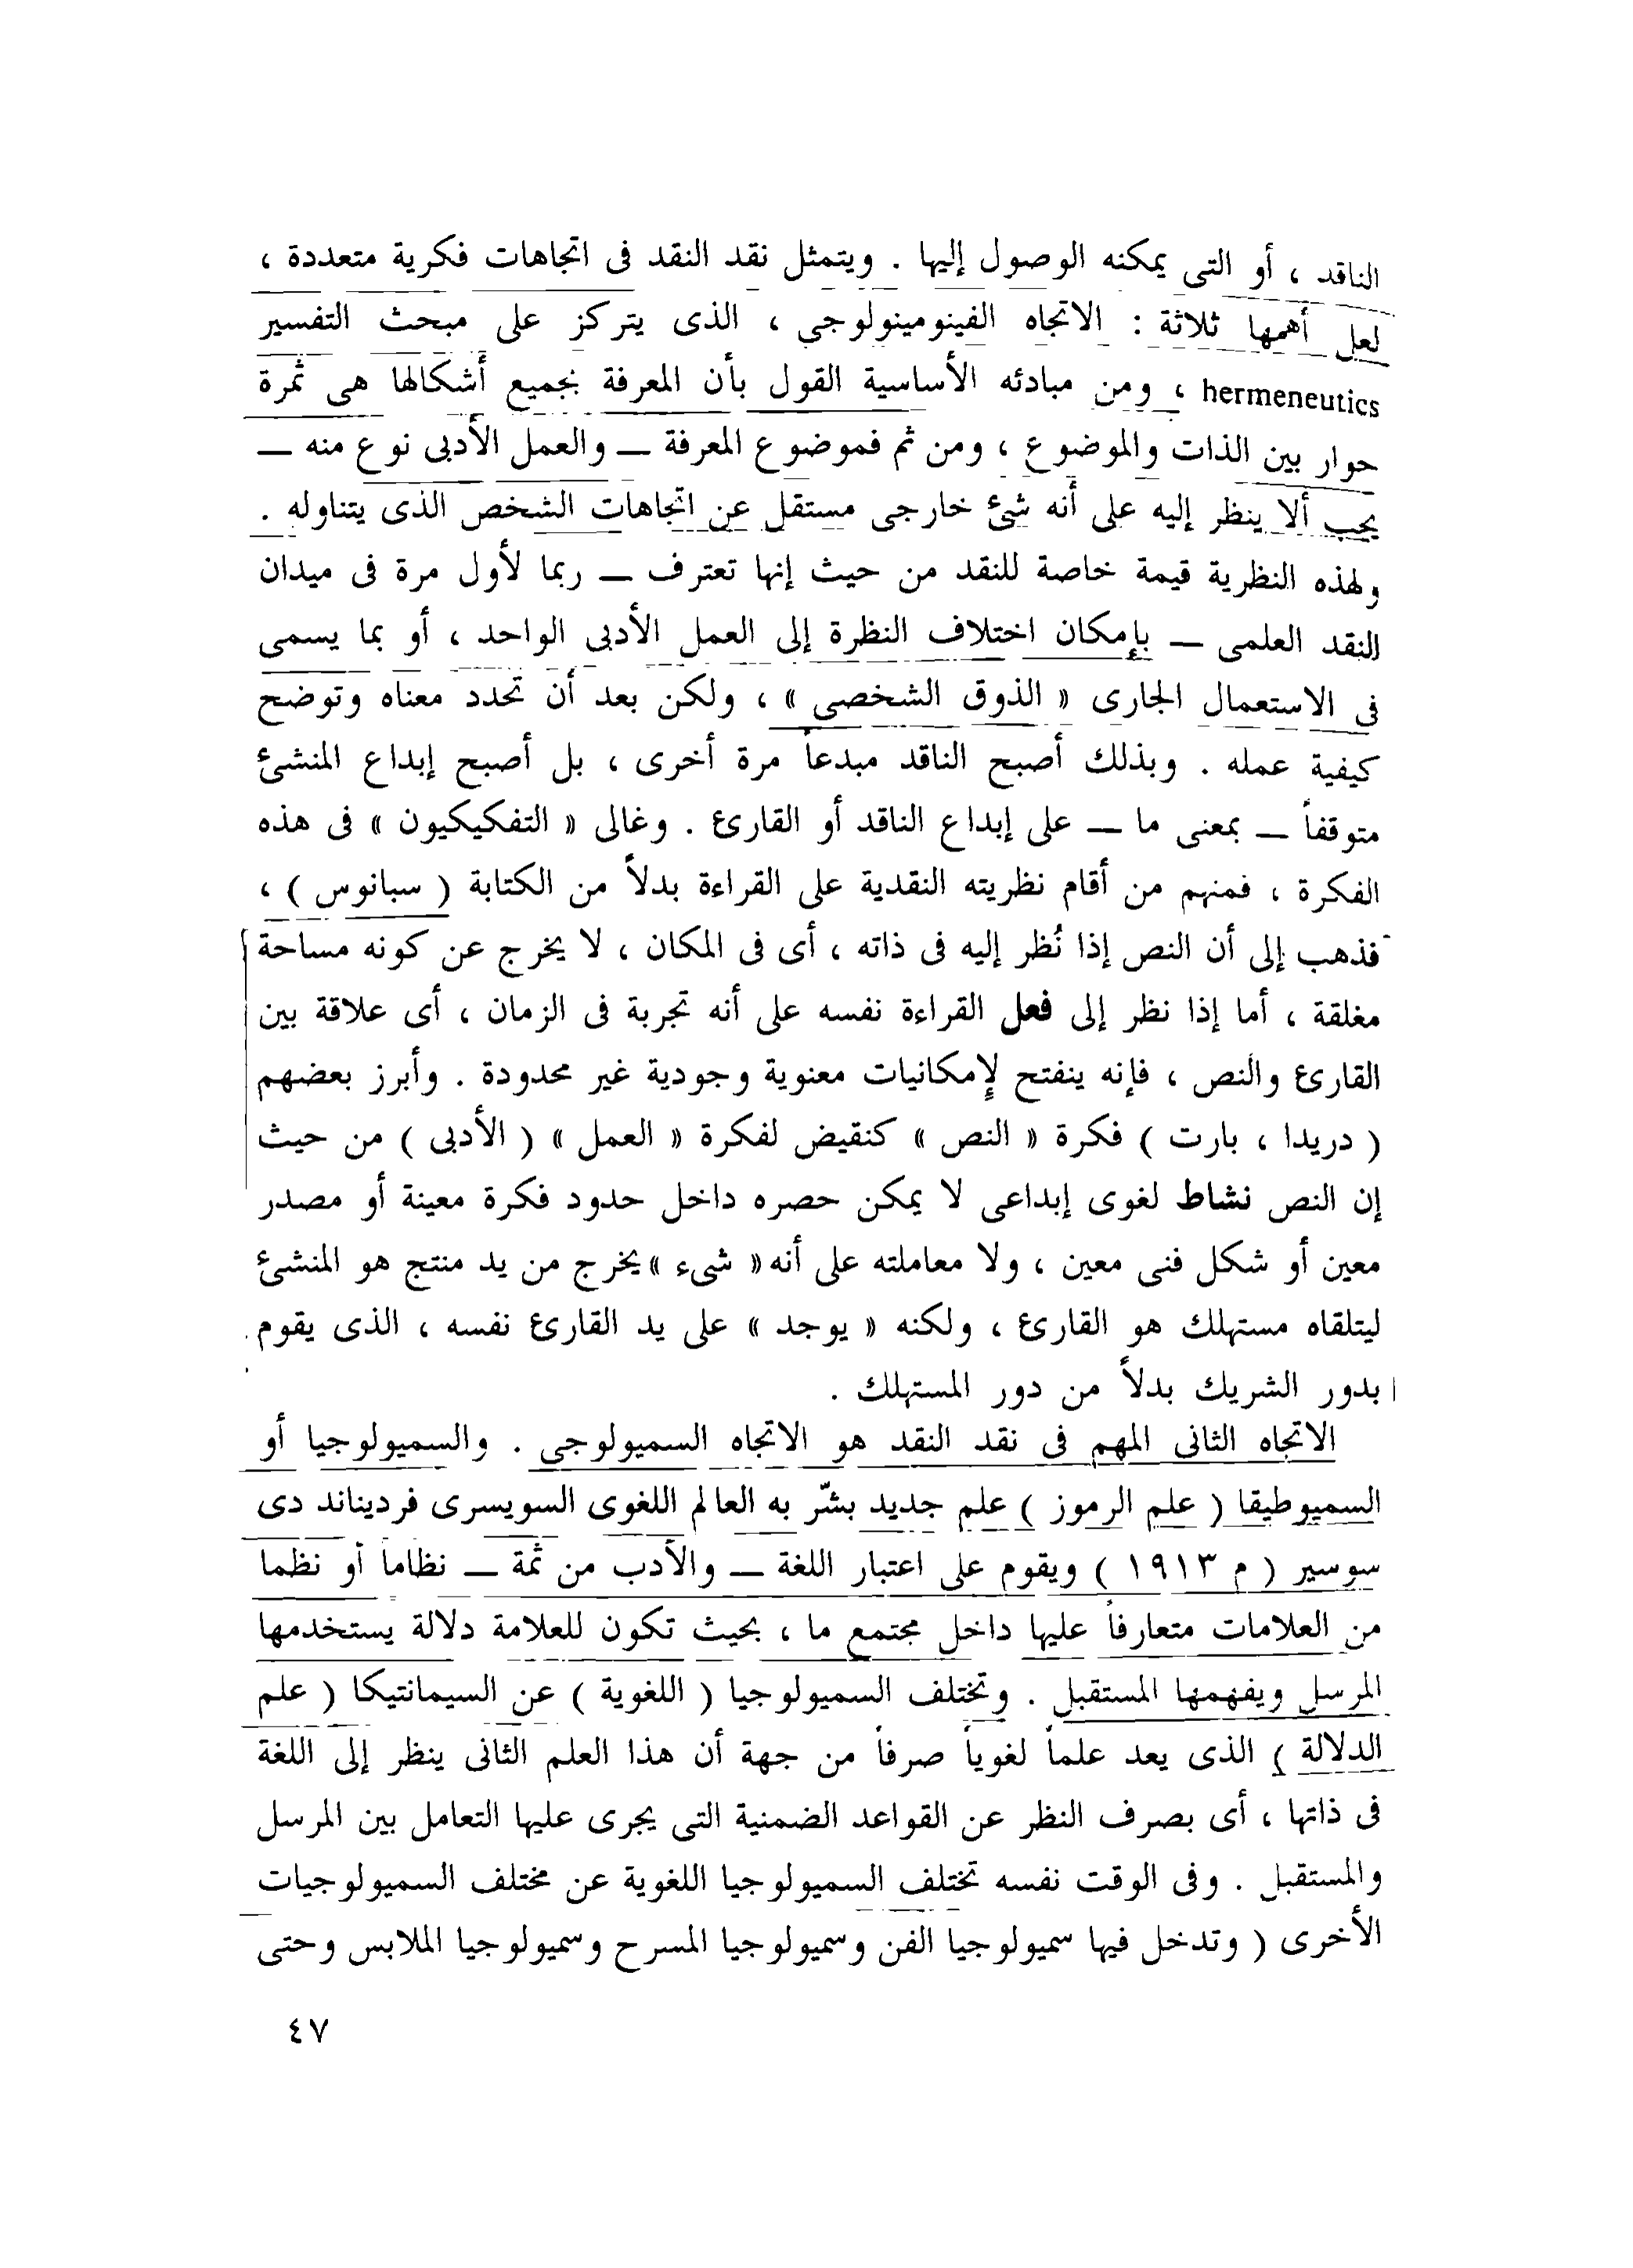 الناقد ، أو التى يمكنه الوصول إليها . ويتمثل نقد النقد فى اتجاهات فكرية متعددة ،
لعل أهمها ثلاثة : الاتجاه الفينومينولوجى ، الذى يتركز على مبحث التفسير
hermeneutics ، ومن مبادئه الأساسية القول بأن المعرفة بجميع أشكالها هى ثمرة
حوار بين الذات والموضوع ، ومن ثم فموضوع المعرفة — والعمل الأدبى نوع منه —
يجب ألا ينظر إليه على أنه شئ خارجى مستقل عن اتجاهات الشخص الذى يتناوله .
ولهذه النظرية قيمة خاصة للنقد من حيث إنها تعترف — ربما لأول مرة فى ميدان
النقد العلمى — بإمكان اختلاف النظرة إلى العمل الأدبى الواحد ، أو بما يسمى
فى الاستعمال الجارى « الذوق الشخصى » ، ولكن بعد أن تحدد معناه وتوضح
كيفية عمله . وبذلك أصبح الناقد مبدعاً مرة أخرى ، بل أصبح إبداع المنشئ
متوقفاً — بمعنى ما — على إبداع الناقد أو القارئ . وغالى « التفكيكيون » فى هذه
الفكرة ، فمنهم من أقام نظريته النقدية على القراءة بدلاً من الكتابة ( سبانوس ) ،
فذهب إلى أن النص إذا نُظر إليه فى ذاته ، أى فى المكان ، لا يخرج عن كونه مساحة
مغلقة ، أما إذا نظر إلى فعل القراءة نفسه على أنه تجربة فى الزمان ، أى علاقة بين
القارئ والنص ، فإنه ينفتح لإمكانيات معنوية وجودية غير محدودة . وأبرز بعضهم
( دريدا ، بارت ) فكرة « النص » كنقيض لفكرة « العمل » ( الأدبى ) من حيث
إن النص نشاط لغوى إبداعى لا يمكن حصره داخل حدود فكرة معينة أو مصدر
معين أو شكل فنى معين ، ولا معاملته على أنه « شىء » يخرج من يد منتج هو المنشئ
ليتلقاه مستهلك هو القارئ ، ولكنه « يوجد » على يد القارئ نفسه ، الذى يقوم
بدور الشريك بدلاً من دور المستهلك .
الاتجاه الثانى المهم فى نقد النقد هو الاتجاه السميولوجى . والسميولوجيا أو
السميوطيقا ( علم الرموز ) علم جديد بشّر به العالم اللغوى السويسرى فرديناند دى
سوسير ( م ١٩١٣ ) ويقوم على اعتبار اللغة — والأدب من ثمة — نظاماً أو نظما
من العلامات متعارفاً عليها داخل مجتمع ما ، بحيث تكون للعلامة دلالة يستخدمها
المرسل ويفهمها المستقبل . وتختلف السميولوجيا ( اللغوية ) عن السيمانتيكا ( علم
الدلالة ) الذى يعد علماً لغوياً صرفاً من جهة أن هذا العلم الثانى ينظر إلى اللغة
فى ذاتها ، أى بصرف النظر عن القواعد الضمنية التى يجرى عليها التعامل بين المرسل
والمستقبل . وفى الوقت نفسه تختلف السميولوجيا اللغوية عن مختلف السميولوجيات
الأخرى ( وتدخل فيها سميولوجيا الفن وسميولوجيا المسرح وسميولوجيا الملابس وحتى
٤٧